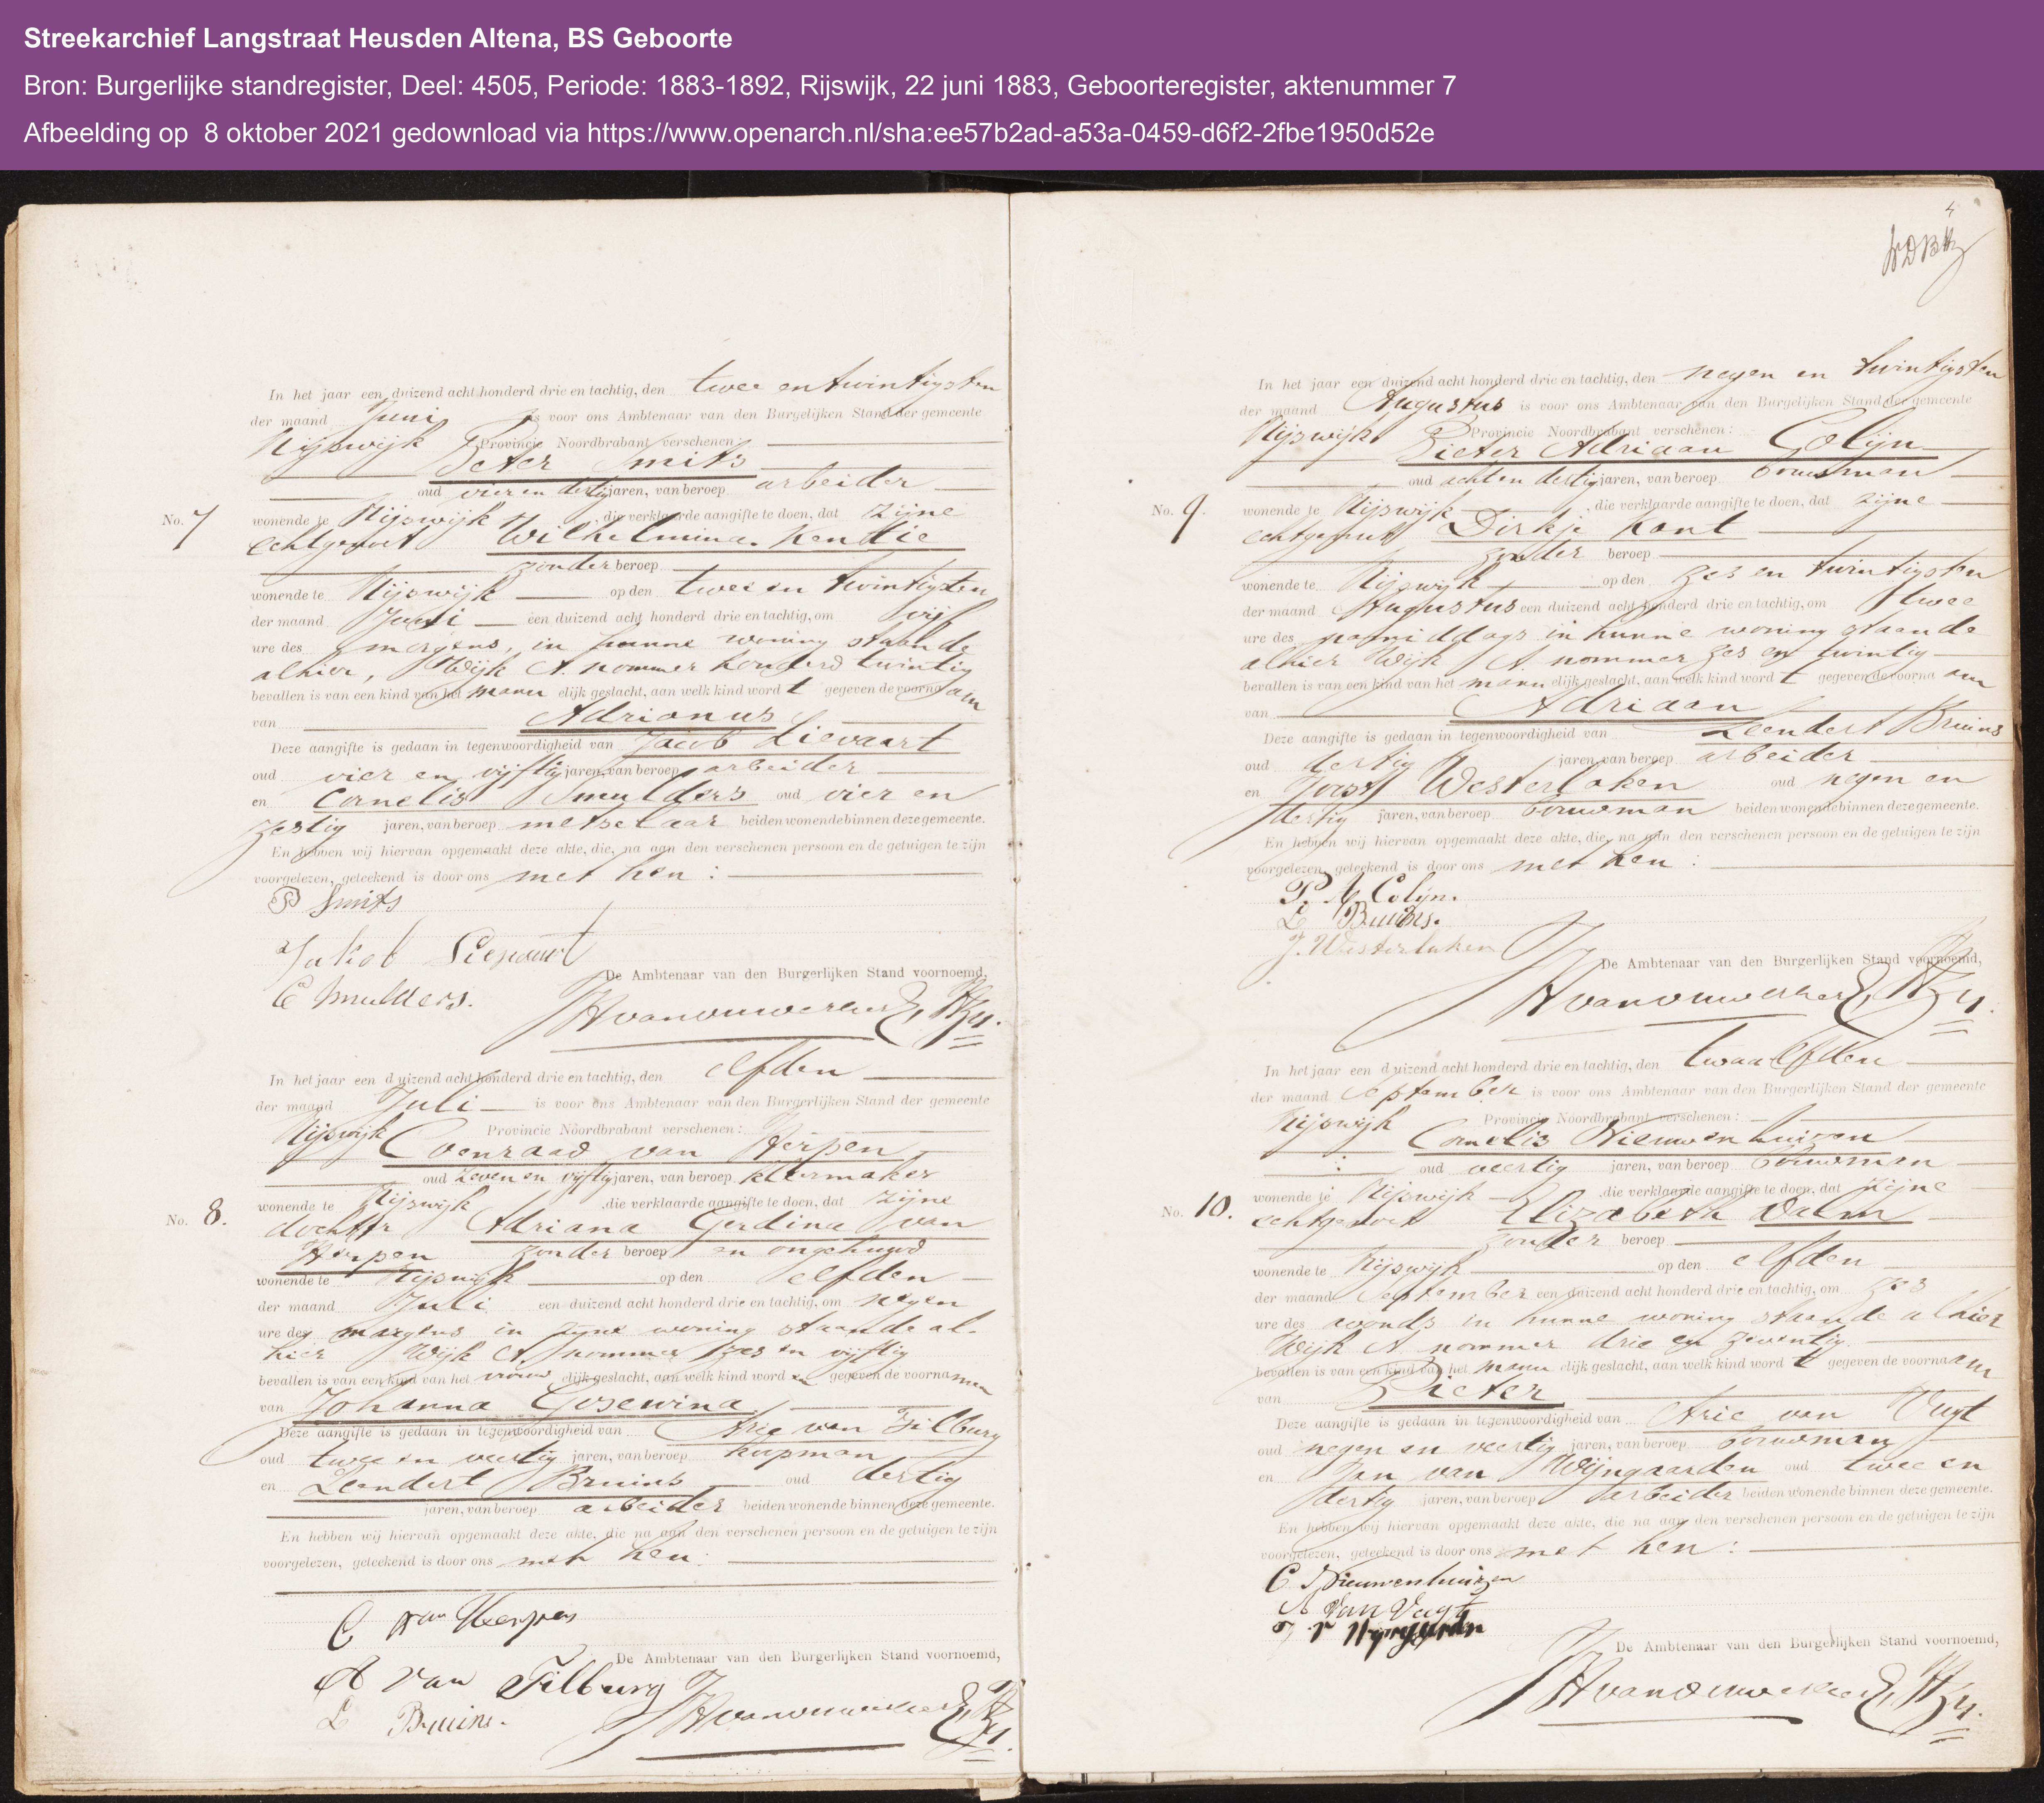 Streekarchief Langstraat Heusden Altena, BS Geboorte
Bron: Burgerlijke standregister, Deel: 4505, Periode: 1883-1892, Rijswijk, 22 juni 1883, Geboorteregister, aktenummer 7
Afbeelding op 8 oktober 2021 gedownload via https://www.openarch.nl/sha:ee57b2ad-a53a-0459-d6f2-2fbe1950d52e
In het jaar een duizend acht honderd drie en tachtig, den twee en twintigsten
der maand Juni is voor ons Ambtenaar van den Burgelijken Stand der gemeente
Rijswijk Provincie Noordbrabant verschenen:
Peter Smits
oud vier en dertig jaren, van beroep arbeider
No. 7 wonende te Rijswijk, die verklaarde aangifte te doen, dat zijne
echtgenoot Wilhelmina Kendie
zonder beroep
wonende te Rijswijk op den twee en twintigsten
der maand Juni een duizend acht honderd drie en tachtig, om vijf
ure des morgens, in hunne woning staande
alhier, Wijk A. nommer honderd twintig
bevallen is van een kind van het mannelijk geslacht, aan welk kind wordt gegeven de voornaam
van Adrianus
Deze aangifte is gedaan in tegenwoordigheid van Jacob Lievaart
oud vier en vijftig jaren, van beroep arbeider
en Cornelis Smulders oud vier en
zestig jaren, van beroep metselaar beiden wonende binnen deze gemeente.
En hebben wij hiervan opgemaakt deze akte, die, na aan den verschenen persoon en de getuigen te zijn
voorgelezen, geteekend is door ons met hen:
P Smits
Jakob Lievaart
De Ambtenaar van den Burgerlijken Stand voornoemd,
C Smulders.
In het jaar een duizend acht honderd drie en tachtig, den elfden
der maand Juli is voor ons Ambtenaar van den Burgerlijken Stand der gemeente
Rijswijk Provincie Noordbrabant verschenen:
Coenraad van Herpen
oud zeven en vijftig jaren, van beroep kleermaker
No. 8. wonende te Rijswijk, die verklaarde aangifte te doen, dat zijne
dochter Adriana Gerdina van
Herpen zonder beroep en ongehuwd
wonende te Rijswijk op den elfden
der maand Juli een duizend acht honderd drie en tachtig, om negen
ure des morgens in zijne woning staande al-
hier Wijk A. nommer zes en vijftig
bevallen is van een kind van het vrouwelijk geslacht, aan welk kind worden gegeven de voornamen
van Johanna Gosewina
Deze aangifte is gedaan in tegenwoordigheid van Arie van Tilburg
oud twee en veertig jaren, van beroep koopman
en Leendert Bruins oud dertig
jaren, van beroep arbeider beiden wonende binnen deze gemeente.
En hebben wij hiervan opgemaakt deze akte, die na aan den verschenen persoon en de getuigen te zijn
voorgelezen, geteekend is door ons met hen:
C van Herpen
De Ambtenaar van den Burgerlijken Stand voornoemd,
A van Tilburg
L Bruins.
4
In het jaar een duizend acht honderd drie en tachtig, den negen en twintigsten
der maand Augustus is voor ons Ambtenaar van den Burgelijken Stand der gemeente
Rijswijk Provincie Noordbrabant verschenen:
Pieter Adriaan Colijn
oud acht en dertig jaren, van beroep bouwman
No. 9. wonende te Rijswijk, die verklaarde aangifte te doen, dat zijne
echtgenoot Dirkje Kant
zonder beroep
wonende te Rijswijk op den zes en twintigsten
der maand Augustus een duizend acht honderd drie en tachtig, om twee
ure des namiddags in hunne woning staande
alhier Wijk A. nommer zes en twintig
bevallen is van een kind van het mannelijk geslacht, aan welk kind wordt gegeven de voornaam
van Adriaan
Deze aangifte is gedaan in tegenwoordigheid van Leendert Bruins
oud dertig jaren, van beroep arbeider
en Joost Westerlaken oud negen en
dertig jaren, van beroep bouwman beiden wonende binnen deze gemeente.
En hebben wij hiervan opgemaakt deze akte, die, na aan den verschenen persoon en de getuigen te zijn
voorgelezen, geteekend is door ons met hen:
P. A. Colijn.
L Bruins.
J. Westerlaken
De Ambtenaar van den Burgerlijken Stand voornoemd,
In het jaar een duizend acht honderd drie en tachtig, den twaalfden
der maand September is voor ons Ambtenaar van den Burgerlijken Stand der gemeente
Rijswijk Provincie Noordbrabant verschenen:
Cornelis Nieuwenhuizen
oud veertig jaren, van beroep bouwman
No. 10. wonende te Rijswijk, die verklaarde aangifte te doen, dat zijne
echtgenoot Elizabeth Dalm
zonder beroep
wonende te Rijswijk op den elfden
der maand September een duizend acht honderd drie en tachtig, om zes
ure des avonds in hunne woning staande alhier
Wijk A. nommer drie en zeventig.
bevallen is van een kind van het mannelijk geslacht, aan welk kind wordt gegeven de voornaam
van Pieter
Deze aangifte is gedaan in tegenwoordigheid van Arie van Vugt
oud negen en veertig jaren, van beroep bouwman
en Jan van Wijngaarden oud twee en
dertig jaren, van beroep arbeider beiden wonende binnen deze gemeente.
En hebben wij hiervan opgemaakt deze akte, die na aan den verschenen persoon en de getuigen te zijn
voorgelezen, geteekend is door ons met hen:
C Nieuwenhuizen
A Van Vugt
De Ambtenaar van den Burgerlijken Stand voornoemd,